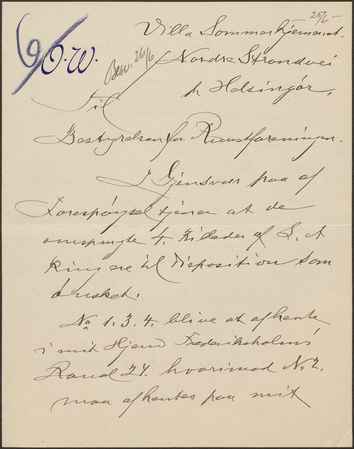 25/6 -
9 O.W.
Besv. 26/6
Villa Sommerhjemmet.
Nordre Strandvei
pr Helsingør.
Til
Bestyrelsen for Kunstforeningen.
I Gjensvar paa af
Forespørgsel tjener at de
omspurgte 4 Billeder af
er til Disposition som
ønsket.
No 1. 3. 4. blive at afhente
i mit Hjem Frederiksholms
Kanal 24. hvorimod No 2.
maa afhentes paa mit